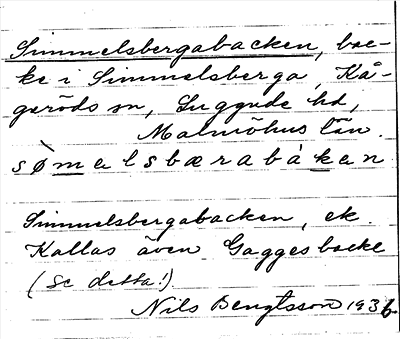 Simmelsbergabacken, bac-
ke i Simmelsberga, Kå-
geröds sn, Luggude hd,
Malmöhus län.
sømelsbærabåken
Simmelsbergabacken, ek.
Kallas även Gagges backe
(se detta!).
Nils Bengtsson 1936.